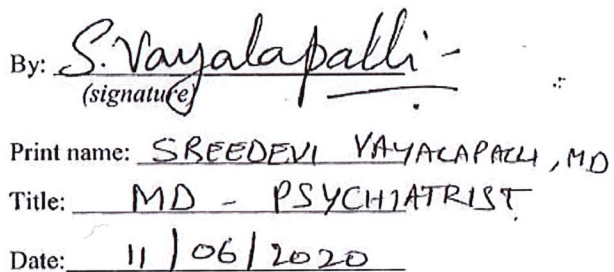 By: S. Vayalapalli
(signature)
Print name: SREEDEVI VAYALAPALLI, MD
Title: MD - PSYCHIATRIST
Date: 11/06/2020